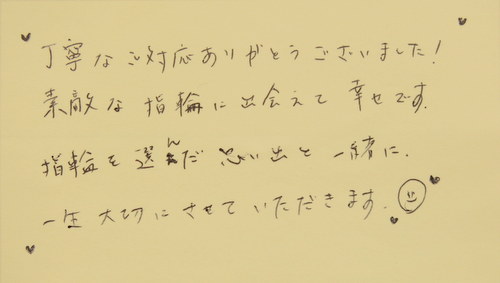 丁寧なご対応ありがとうございました!
素敵な指輪に出会えて幸せです.
指輪を選んだ思い出と一緒に.
一生大切にさせていただきます.